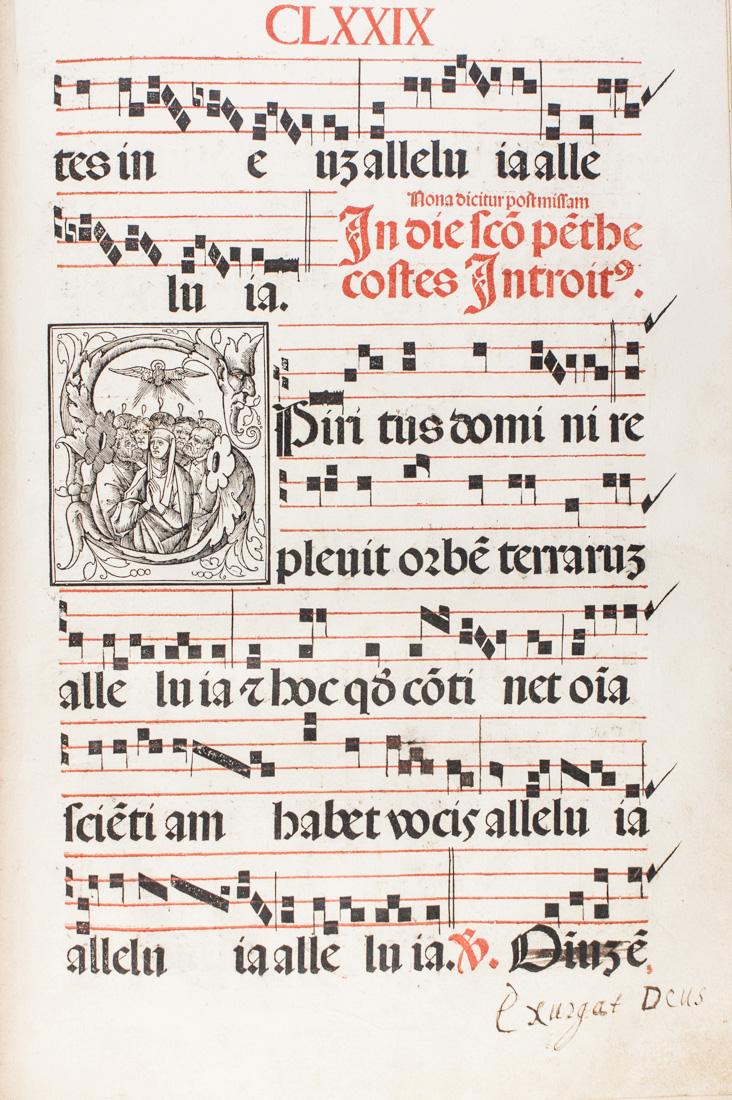 CLXXIX
tes in e uꝫ allelu ia alle
Nona dicitur post missam
In die scō pēthe
lu ia.
costes Introitꝰ.
SPiri tus domi ni re
plevit orbē terraruꝫ
alle lu ia ⁊ hoc qđ cōti net oīa
sciēti am habet vocis allelu ia
allelu ia alle lu ia. ℣. Oīuꝫ ē
Exurgat Deus